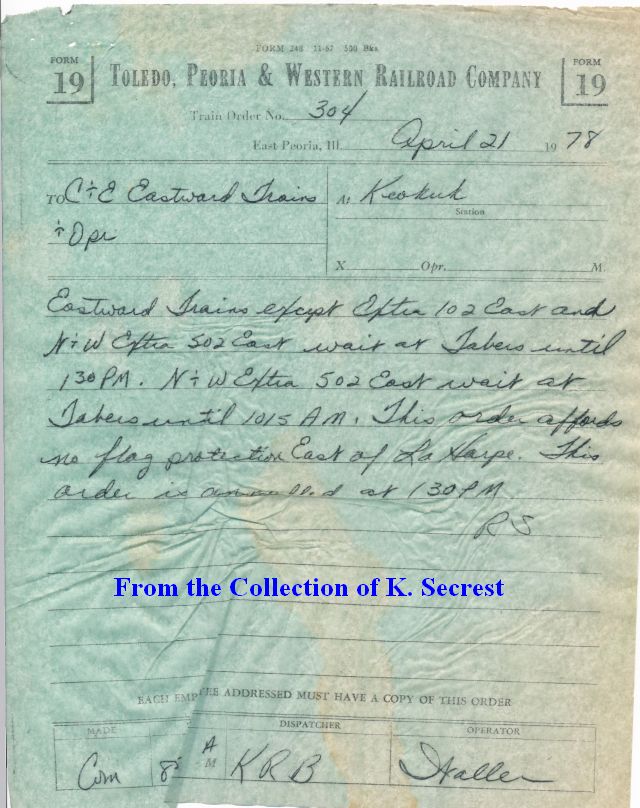 FORM 248 11-67 500 Bks.
FORM 19
TOLEDO, PEORIA & WESTERN RAILROAD COMPANY
FORM 19
Train Order No. 304
East Peoria, Ill. April 21 1978
TO C+E Eastward Trains
+ Opr
At Keokuk
Station
X Opr. M.
Eastward Trains except Extra 102 East and
N+W Extra 502 East wait at Tabers until
130 PM. N+W Extra 502 East wait at
Tabers until 1015 AM. This order affords
no flag protection East of La Harpe. This
order is annulled at 130 PM
RS
From the Collection of K. Secrest
EACH EMP EE ADDRESSED MUST HAVE A COPY OF THIS ORDER
MADE DISPATCHER OPERATOR
Com A M KRB Waller